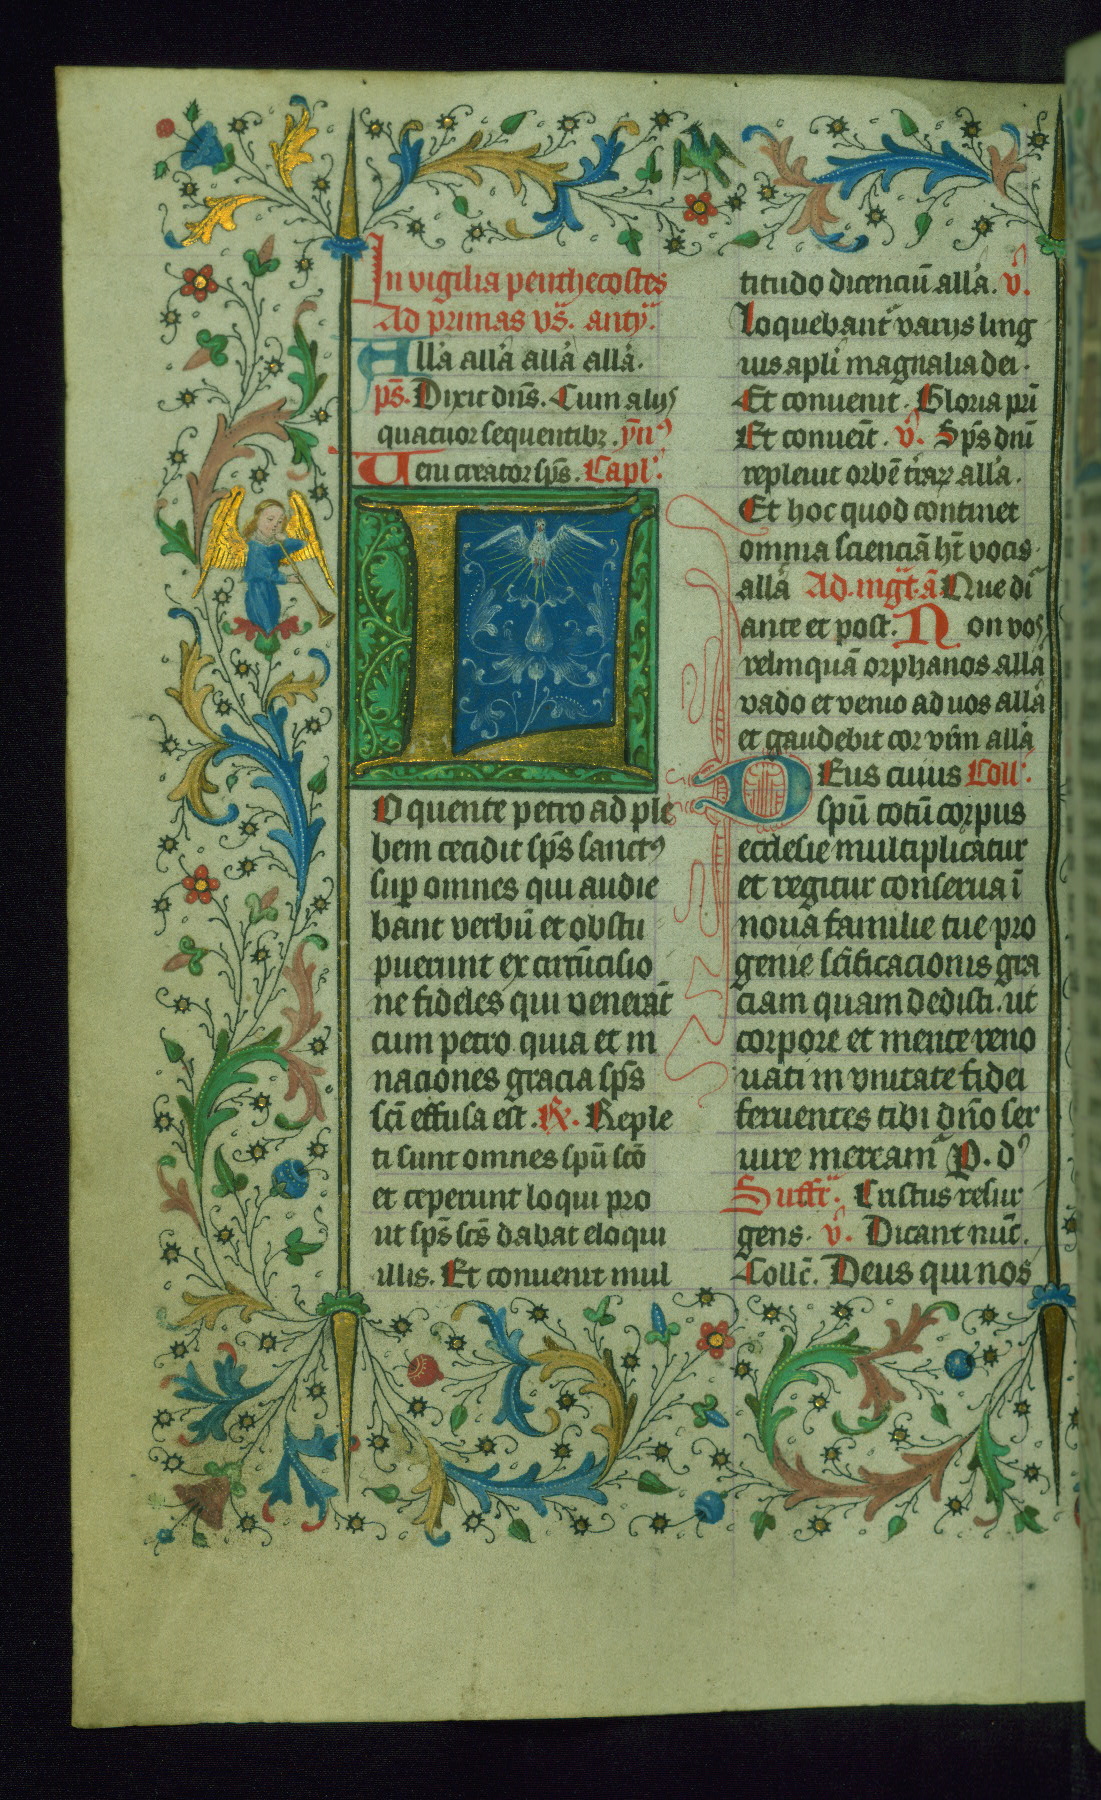 In vigilia penthecostes
Ad primas vs̄. anty̾.
Alla᷑ alla᷑ alla᷑ alla᷑.
ps̄. Dixit dn̄s. Cum alijs
quatuor sequentibꝫ. ẏn᷒
Ueni creator sp̄s. Capl᷑.
L
O quente petro ad ple
bem cecidit sp̄s sanctꝰ
suꝑ omnes qui audie
bant verbū et obstu
puerunt ex circūcisio
ne fideles qui venerāt
cum petro quia et in
naciones gracia sp̄s
sc̄i effusa est. ℟. Reple
ti sunt omnes spū sc̄o
et ceperunt loqui pro
ut sp̄s sc̄s dabat eloqui
illis. Et conuenit mul
titudo dicenciū alla᷑. v᷒.
Loquebant᷑ varijs ling
uis apl̄i magnalia dei.
Et conuenit. Gloria pr̄i
Et conueīt. v᷒. Sp̄s dn̄i
repleuit orbē t̄raꝝ alla᷑.
Et hoc quod continet
omnia scienciā ht̄ vocis.
alla᷑ Ad. mg̾t. ā Que di᷑
ante et post. Non vos
relinquā orphanos alla᷑
vado et venio ad uos alla᷑
et gaudebit cor vr̄m alla᷑
DEus cuius Coll᷑.
spū totū corpus
ecclesie multiplicatur
et regitur conserua ī
noua familie tue pro
genie sc̄ificacionis gra
ciam quam dedisti. ut
corpore et mente reno
uati in vnitate fidei
feruentes tibi dn̄o ser
uire meream᷑ P. d᷒
Suffr᷑. Cristus resur
gens. v᷒. Dicant nūc.
Collc̄. Deus qui nos